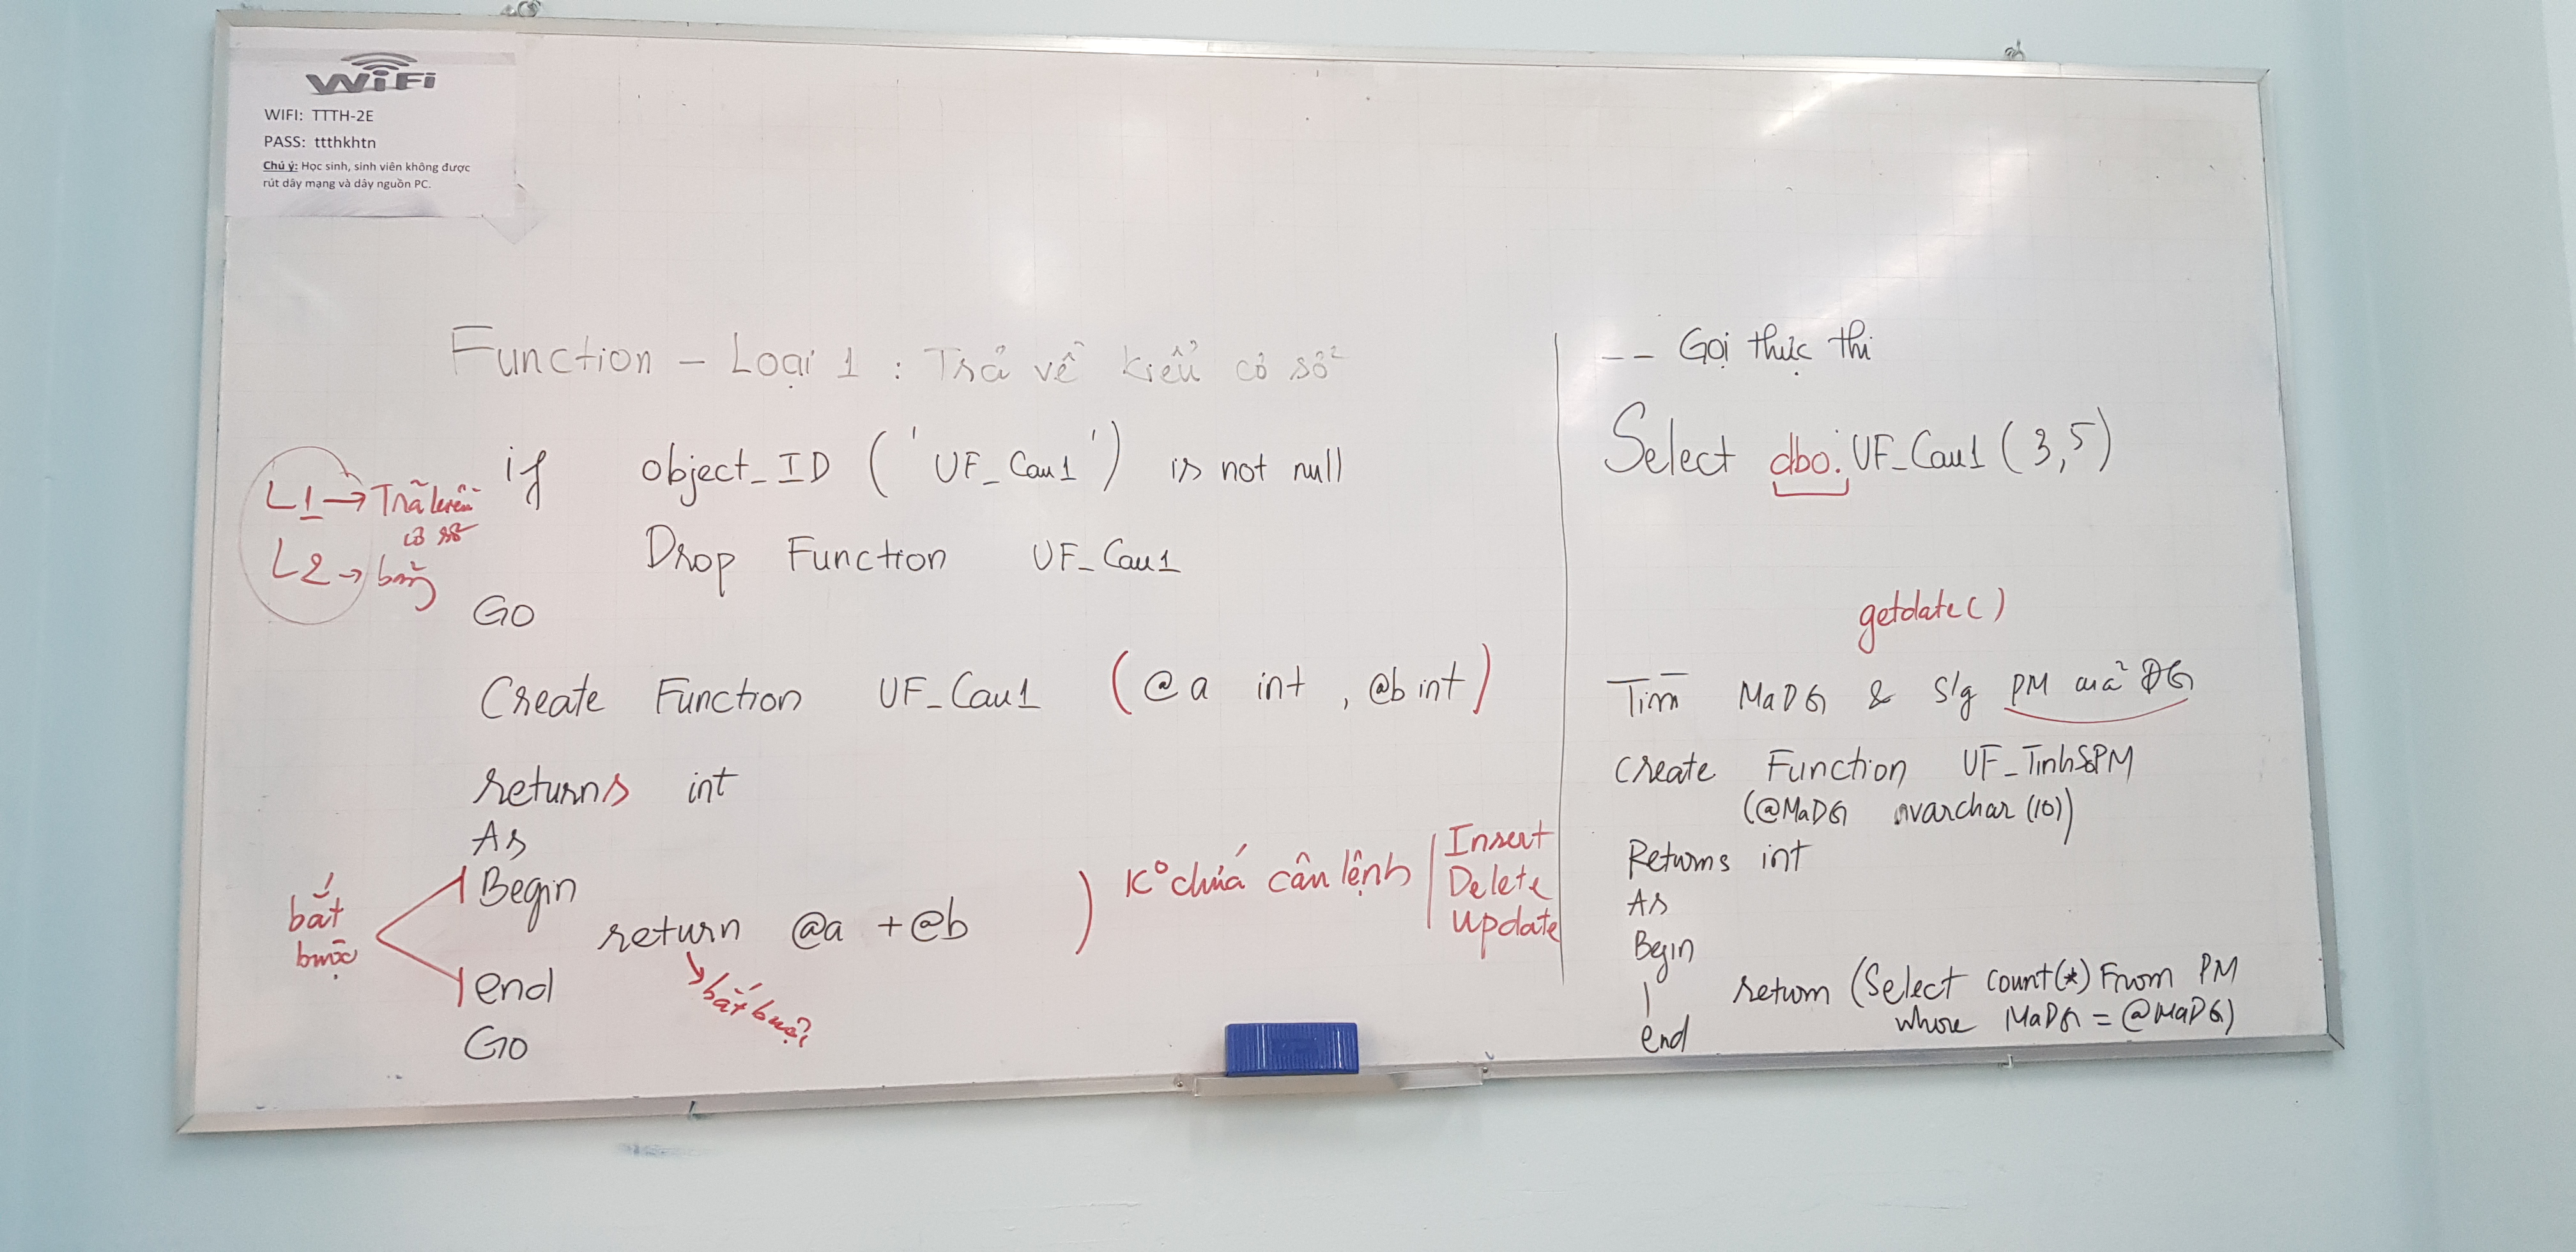 WiFi
WIFI: TTTH-2E
PASS: ttthkhtn
Chú ý: Học sinh, sinh viên không được
rút dây mạng và dây nguồn PC.
Function - Loại 1 : Trả về kiểu cơ sở
L1 → Trả kiểu
cơ sở
L2 → bảng
if object_ID ('UF_Cau1') is not null
Drop Function UF_Cau1
Go
Create Function UF_Cau1 (@a int, @b int)
returns int
As
Begin
return @a + @b
end
Go
bắt
buộc
bắt buộc
K° chứa câu lệnh
Insert
Delete
Update
-- Gọi thực thi
Select dbo.UF_Cau1(3,5)
getdate()
Tìm MaDG & s/g PM của ĐG
Create Function UF_TinhSoPM
(@MaDG nvarchar(10))
Returns int
As
Begin
return (Select count(*) From PM
where MaDG = @MaDG)
end